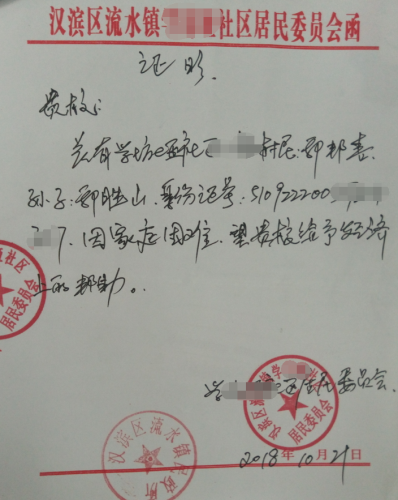 汉滨区流水镇 社区居民委员会函
证明
贵校:
兹有学坊垭社区 村民:邹邦喜
孙子:邹胜山.身份证号:510922200
7.因家庭困难.望贵校给予经济
上的帮助。
学 区居民委员会.
社区
居民委员会
汉滨区流水镇
居民委员会
汉滨区流水镇民政所
2018年10月21日